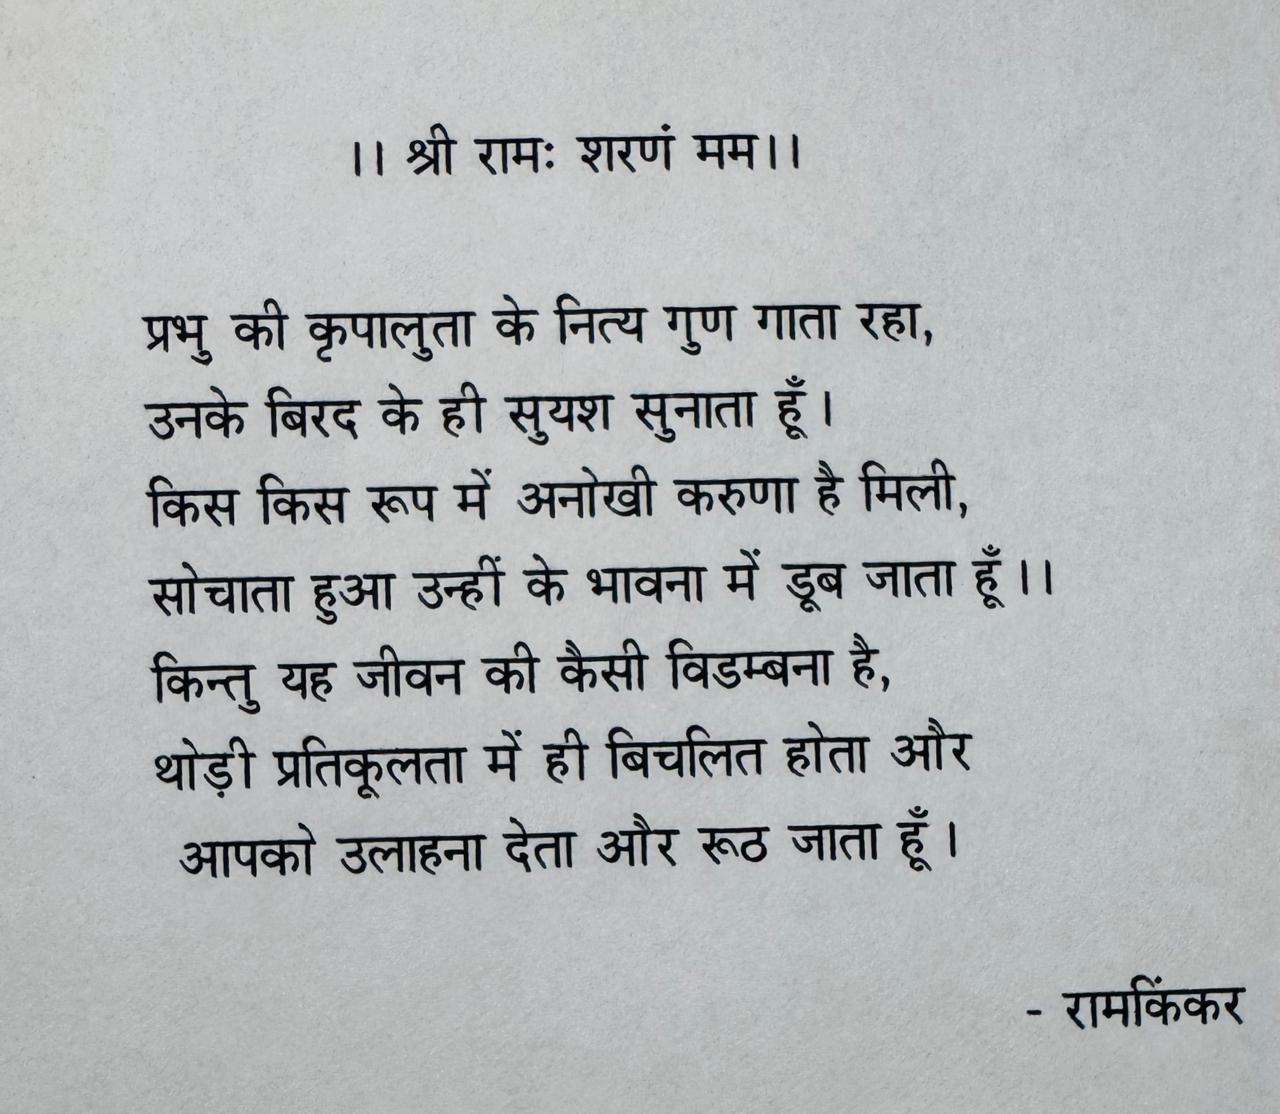 ।। श्री रामः शरणं मम।।
प्रभु की कृपालुता के नित्य गुण गाता रहा,
उनके बिरद के ही सुयश सुनाता हूँ।
किस किस रूप में अनोखी करुणा है मिली,
सोचाता हुआ उन्हीं के भावना में डूब जाता हूँ।।
किन्तु यह जीवन की कैसी विडम्बना है,
थोड़ी प्रतिकूलता में ही बिचलित होता और
आपको उलाहना देता और रूठ जाता हूँ।
- रामकिंकर